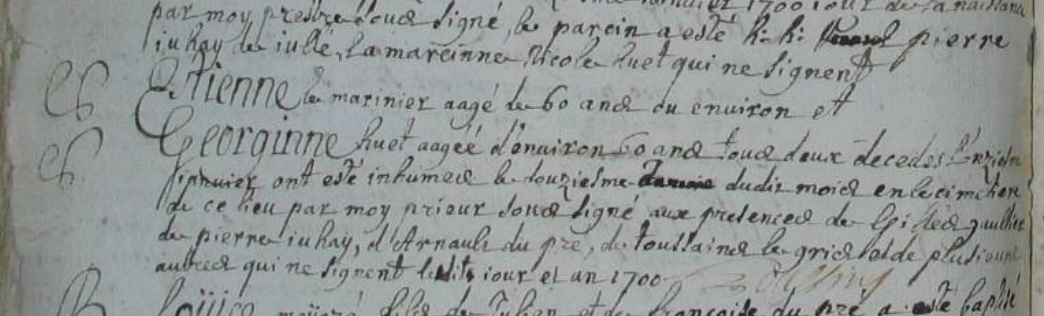 1700 jour de sa naissance
par moy prestre sous signé, le parein a esté h: h: pierre
juhay de jullé, la mareinne Nicole huet qui ne signent
Estienne le marinier aagé de 60 ans ou environ et
Georginne huet aagée d'environ 60 ans tous deux decedes l'onziesme
janvier ont esté inhumes le douziesme dudit mois en le cimetiere
de ce lieu par moy prieur sous signé aux presences de Gilles
de pierre juhay, d'Arnault du pré, de toussaines le gris et de plusieurs
autres qui ne signent jour et an 1700
fils de Julien et de françoise du pré a esté baptisé